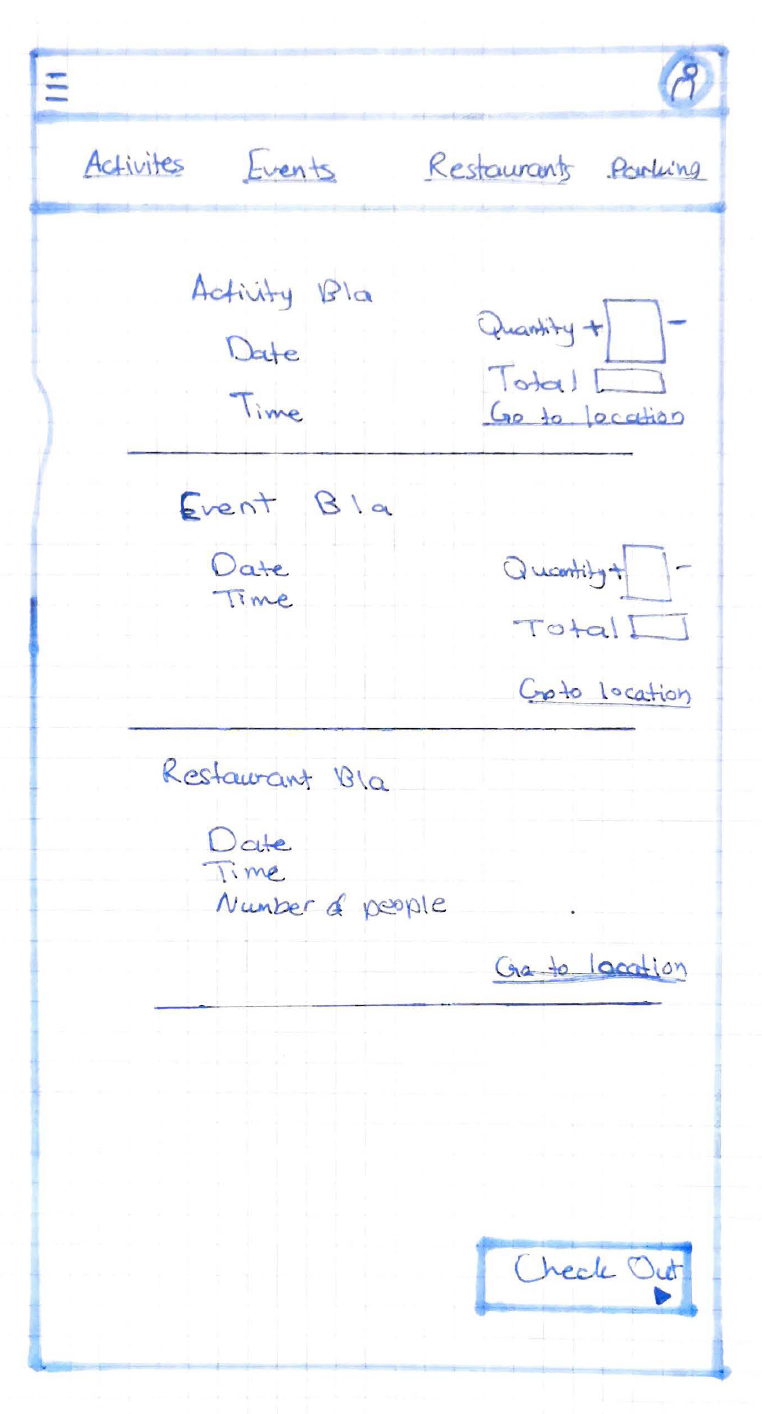 Activites Events Restaurants Parking
Activity Bla
Quantity + -
Date
Total
Time
Go to location
Event Bla
Date
Quantity + -
Time
Total
Go to location
Restaurant Bla
Date
Time
Number of people
Go to location
Check Out